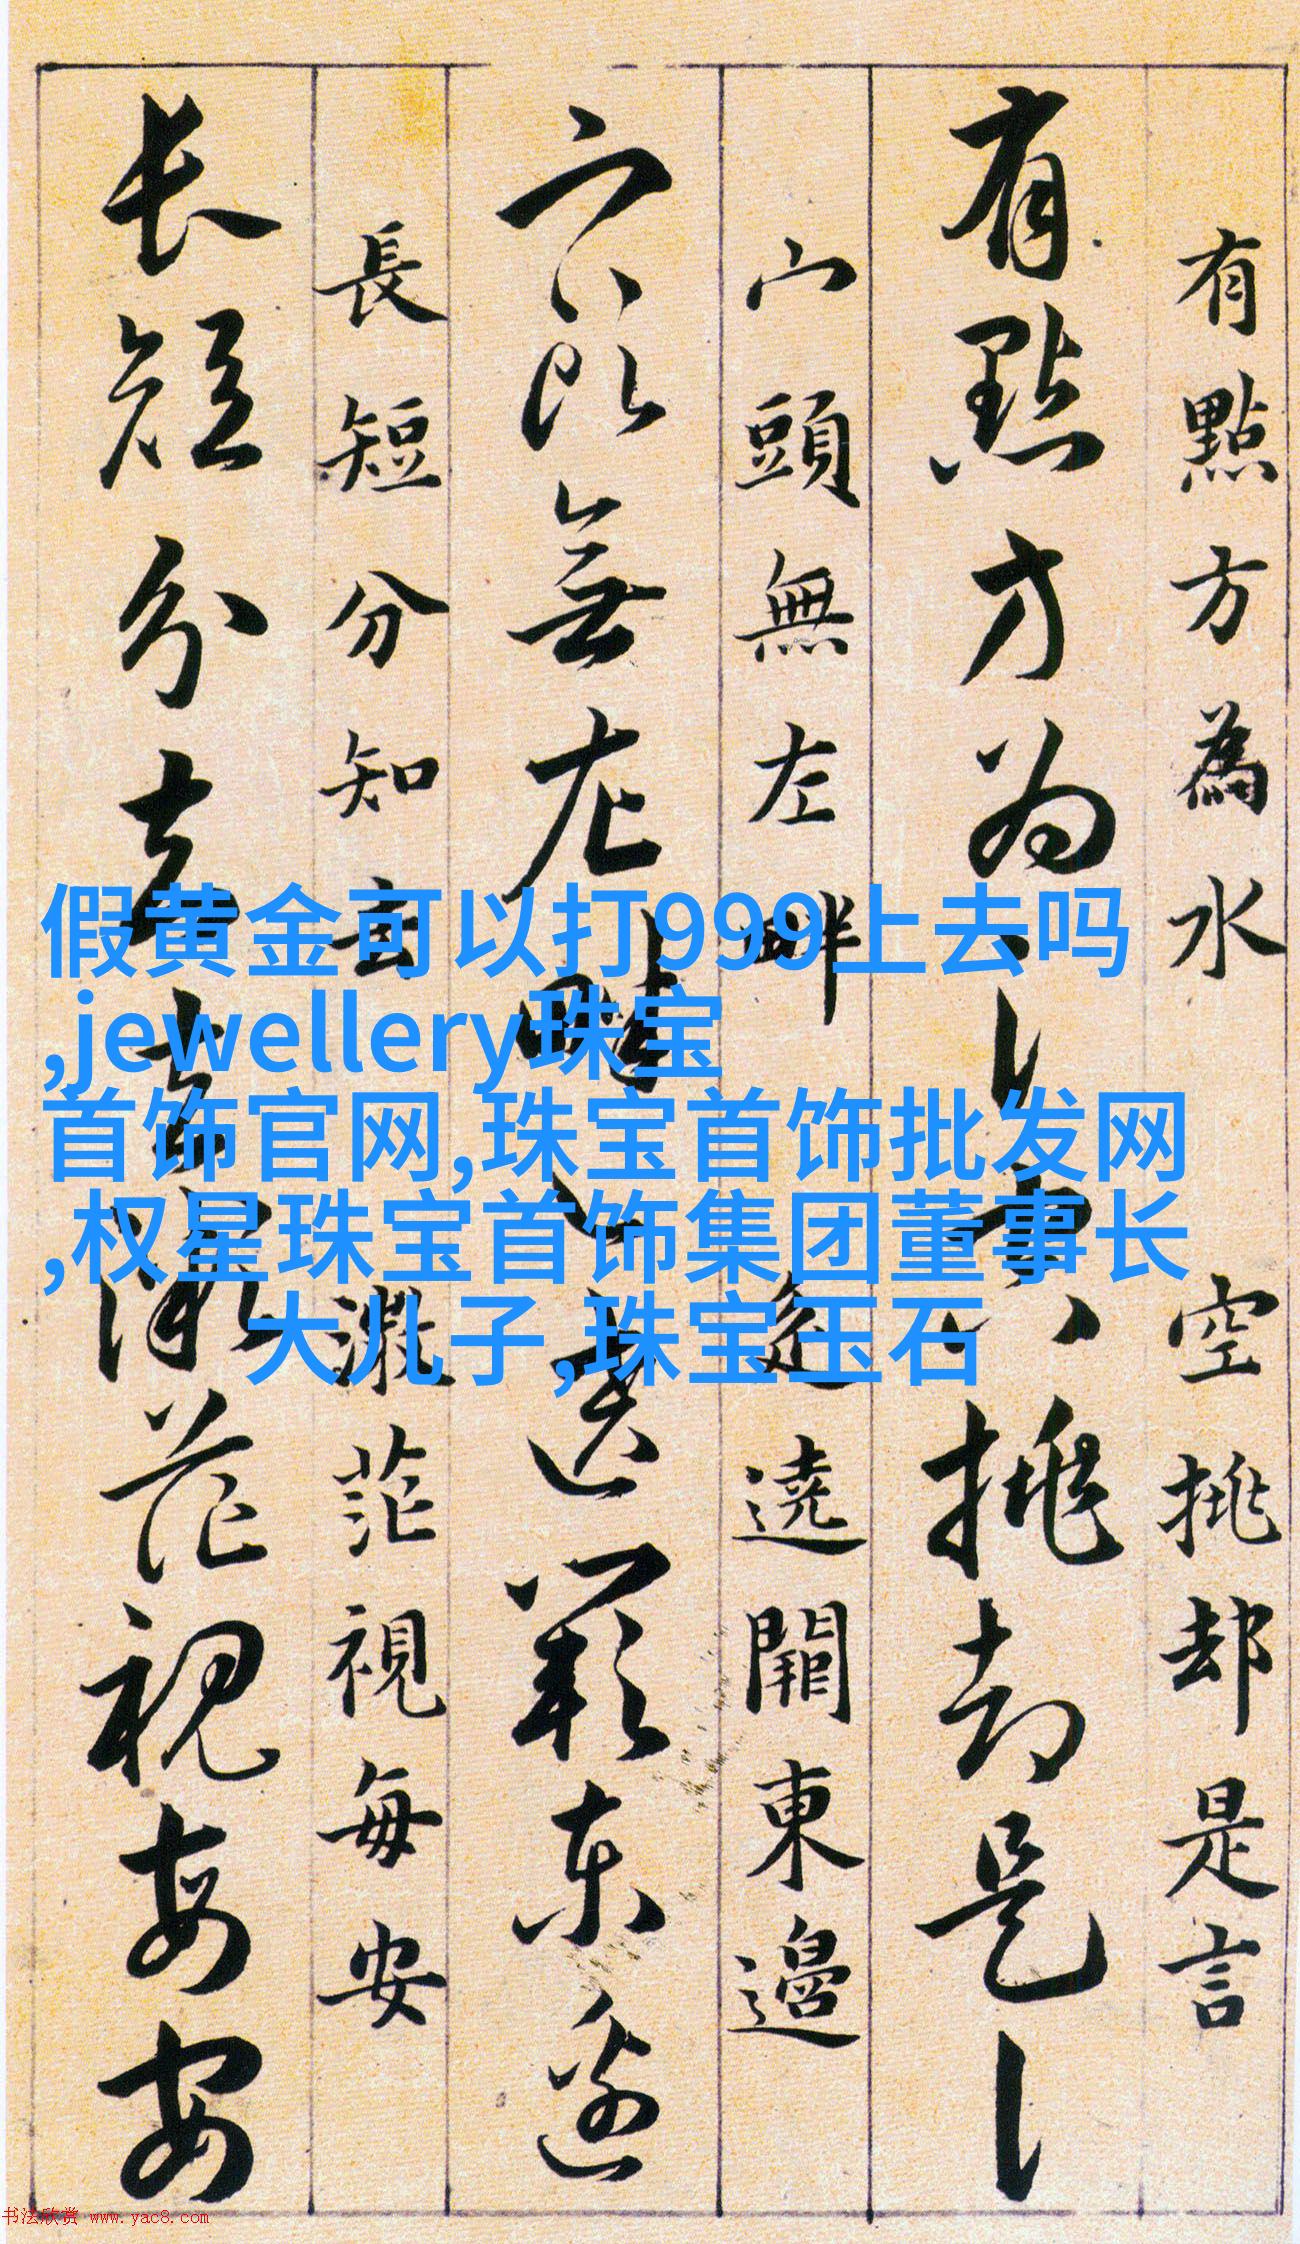 有點方為水
有點方為氵
空挑却是言
空挑却是讠
宀頭無左畔
宀头無左畔
遶闢東邊
長短分知去
长短分知去
微茫視每安
微茫视每安
假黄金可以打999上去吗
,jewellery珠宝
首饰官网,珠宝首饰批发网
,权星珠宝首饰集团董事长
大儿子,珠宝玉石
书法欣赏 www.yac8.com